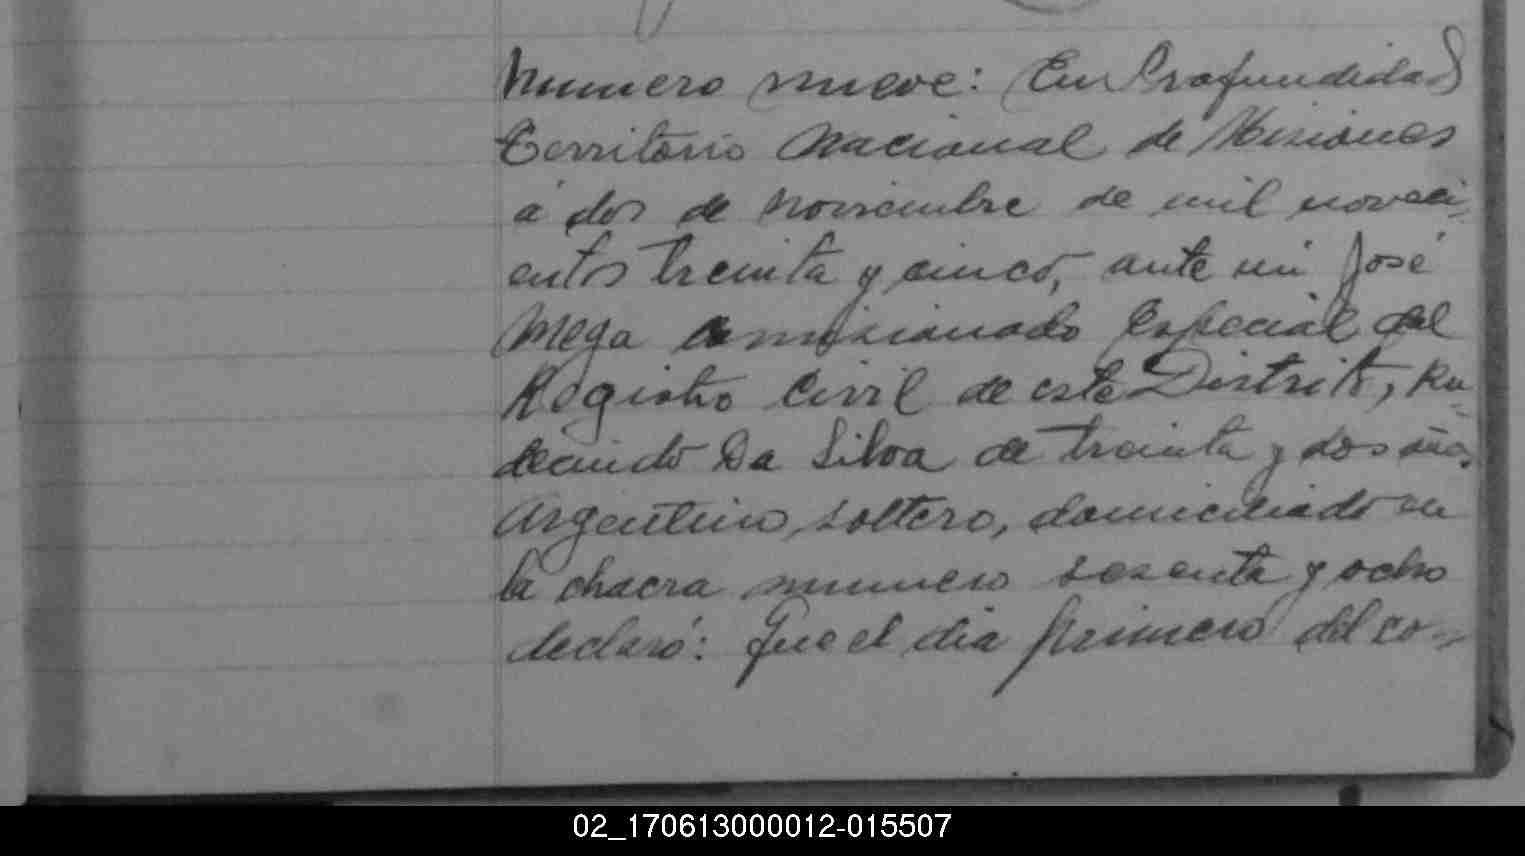 Numero nueve: En Profundidad
Territorio Nacional de Misiones
á dos de Noviembre de mil noveci-
entos treinta y cinco, ante mi José
Mega Comisionado Especial del
Registro Civil de este Distrito, Ru-
decindo Da Silva de treinta y dos años
Argentino, soltero, domiciliado en
la chacra numero sesenta y ocho
declaró: Que el dia primero del co-
02_170613000012-015507